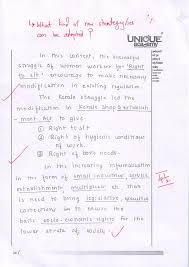 What kind of new strategy/ies
can be adopted?
UNIQUE
ACADEMY
In this context, the successful
struggle of women worker for "Right
to sit" encourage to make necessary
modification in existing regulation.
The Kerala struggle led the
modification in Kerala Shop & establish-
ment Act to give
① Right to sit
② Right of hygienic conditions
of work
③ Right of basic needs.
In the increasing informalisation
in the form of small industries, service
establishments, multiplex etc. that
is need to bring legislative,
corrections to ensure the
basic socio-economic rights for the
lower strata of society.